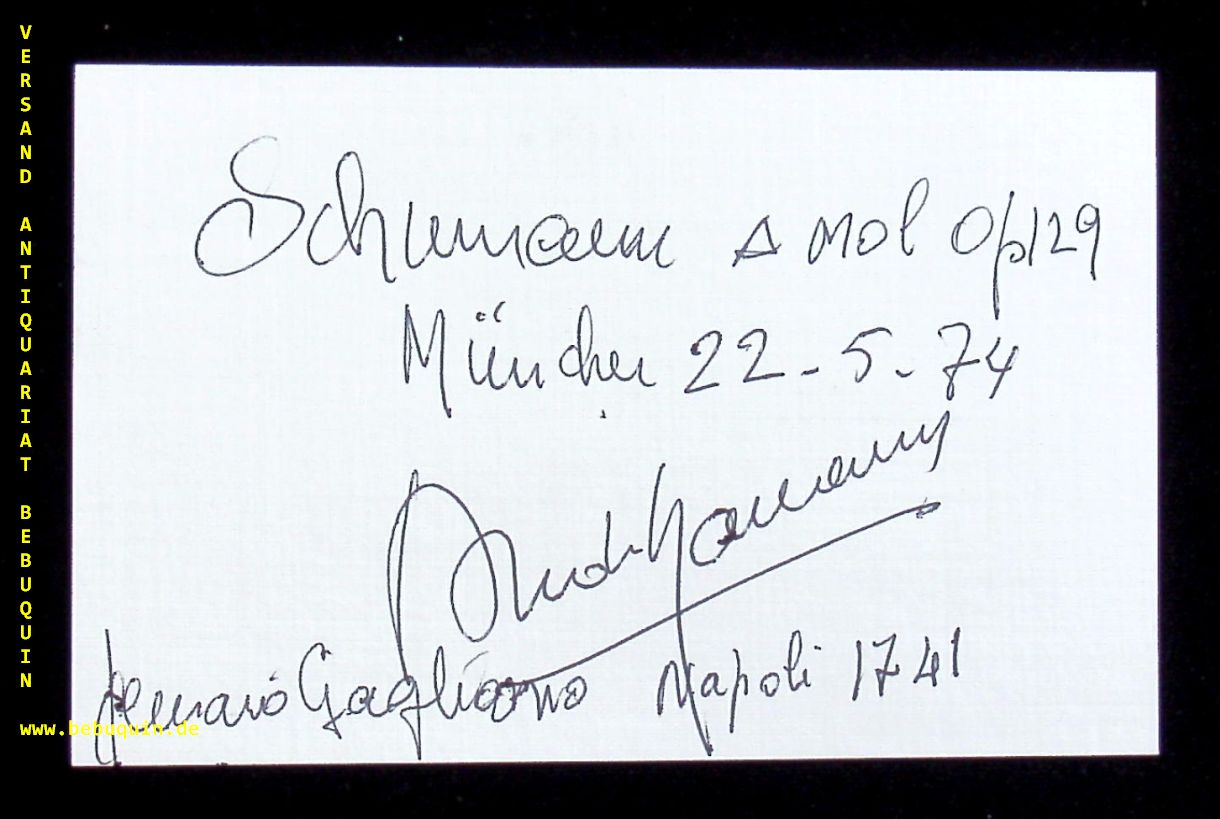 VERSAND ANTIQUARIAT BEBUQUIN
Schumann A mol Op129
München 22-5-74
Gennaro Gagliano Napoli 1741
www.bebuquin.de